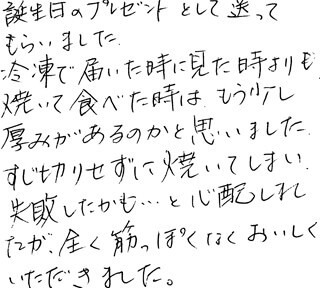 誕生日のプレゼントとして送って
もらいました.
冷凍で届いた時に見た時よりも
焼いて食べた時は、もう少し
厚みがあるのかと思いました.
すじ切りせずに焼いてしまい.
失敗したかも…と心配しまし
たが、全く筋っぽくなくおいしく
いただきました。